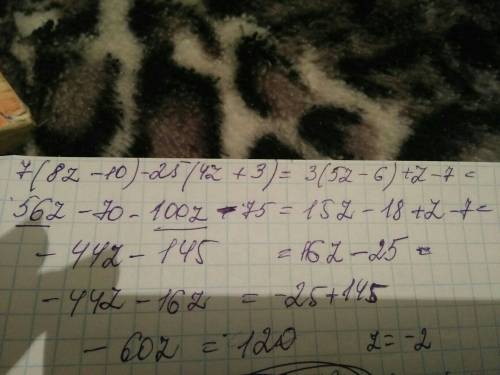 7(8z-10)-25(4z+3)=3(5z-6)+z-7=
56z-70-100z-75=15z-18+z-7=
-44z-145=16z-25-
-44z-16z=-25+145
-60z=120 z=-2